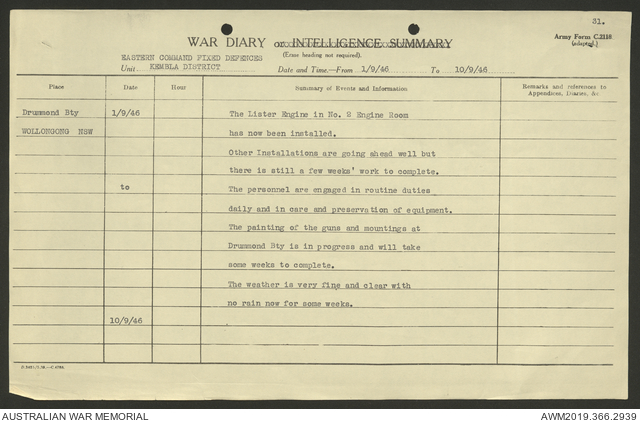 31.
WAR DIARY or INTELLIGENCE SUMMARY
Army Form C.2118
(adapted.)
(Erase heading not required).
EASTERN COMMAND FIXED DEFENCES
Unit KEMBLA DISTRICT
Date and Time.—From 1/9/46 To 10/9/46
Place Date Hour Summary of Events and Information Remarks and references to
Appendices, Diaries, &c
Drummond Bty 1/9/46 The Lister Engine in No. 2 Engine Room
WOLLONGONG NSW has now been installed.
Other Installations are going ahead well but
there is still a few weeks' work to complete.
to The personnel are engaged in routine duties
daily and in care and preservation of equipment.
The painting of the guns and mountings at
Drummond Bty is in progress and will take
some weeks to complete.
The weather is very fine and clear with
no rain now for some weeks.
10/9/46
AUSTRALIAN WAR MEMORIAL
AWM2019.366.2939